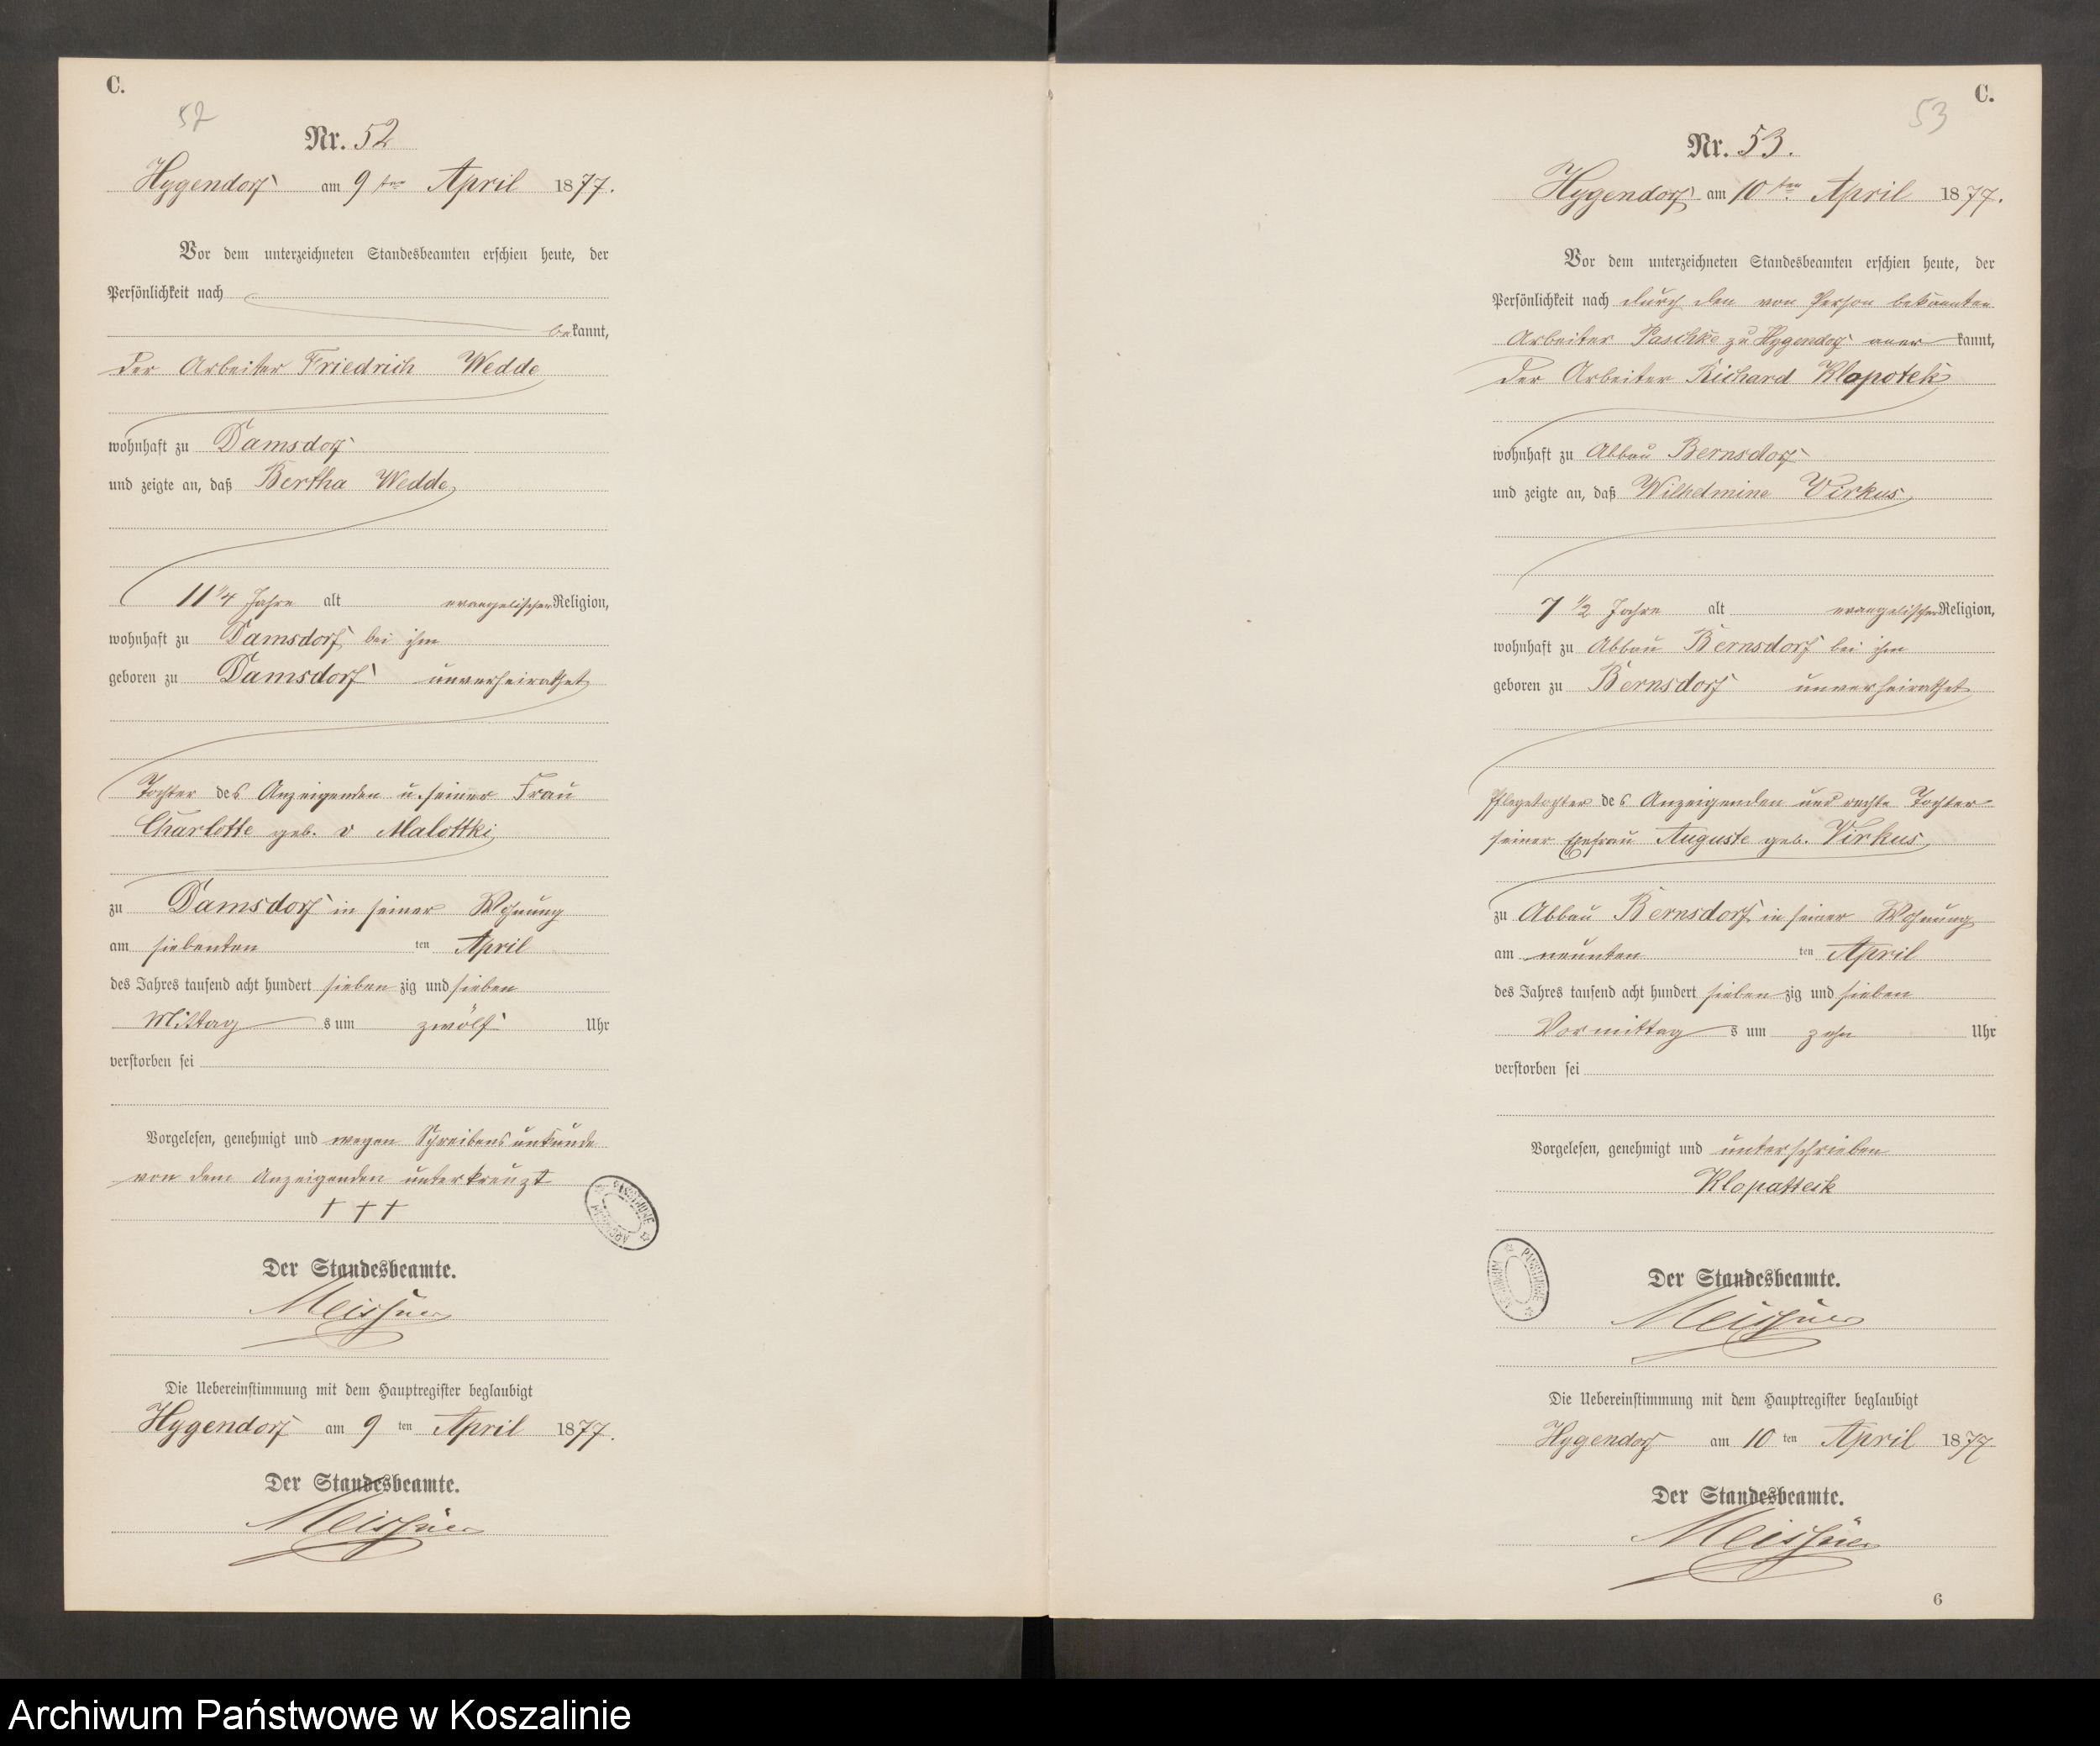 C.
52
Nr. 52
Hygendorf am 9ten April 1877.
Vor dem unterzeichneten Standesbeamten erschien heute, der
Persönlichkeit nach
bekannt,
der Arbeiter Friedrich Wedde
wohnhaft zu Damsdorf
und zeigte an, daß Bertha Wedde,
11 1/4 Jahre alt evangelischer Religion,
wohnhaft zu Damsdorf bei ihm
geboren zu Damsdorf unverheirathet
Tochter des Anzeigenden u. seiner Frau
Charlotte geb. v Malottki
zu Damsdorf in seiner Wohnung
am siebenten ten April
des Jahres tausend acht hundert siebenzig und sieben
Mittags um zwölf Uhr
verstorben sei
Vorgelesen, genehmigt und wegen Schreibensunkunde
von dem Anzeigenden unterkreuzt
† † †
Der Standesbeamte.
Meissner
Die Uebereinstimmung mit dem Hauptregister beglaubigt
Hygendorf am 9 ten April 1877.
Der Standesbeamte.
Meissner
C.
53
Nr. 53.
Hygendorf am 10ten April 1877.
Vor dem unterzeichneten Standesbeamten erschien heute, der
Persönlichkeit nach durch den von Person bekannten
Arbeiter Paschke zu Hygendorf anerkannt,
der Arbeiter Richard Klopotek
wohnhaft zu Abbau Bernsdorf
und zeigte an, daß Wilhelmine Virkus,
7 1/2 Jahre alt evangelischer Religion,
wohnhaft zu Abbau Bernsdorf bei ihm
geboren zu Bernsdorf unverheirathet
Pflegetochter des Anzeigenden und rechte Tochter
seiner Ehefrau Auguste geb. Virkus
zu Abbau Bernsdorf in seiner Wohnung
am neunten ten April
des Jahres tausend acht hundert siebenzig und sieben
Vormittags um zehn Uhr
verstorben sei
Vorgelesen, genehmigt und unterschrieben
Klopatteck
Der Standesbeamte.
Meissner
Die Uebereinstimmung mit dem Hauptregister beglaubigt
Hygendorf am 10 ten April 1877
Der Standesbeamte.
Meissner
6
Archiwum Państwowe w Koszalinie